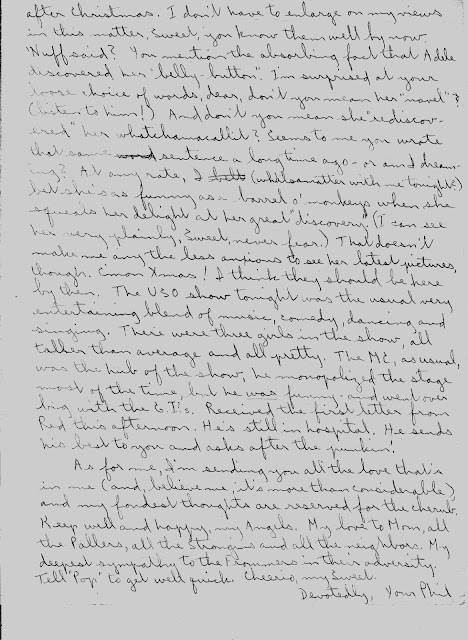 after Christmas. I don't have to enlarge on my views
in this matter, Sweet, you know them well by now.
'Nuff said? You mention the absorbing fact that Adele
discovered her "belly-button". I'm surprised at your
loose choice of words, dear, don't you mean her "navel"?
(listen to him!) And don't you mean she "rediscov-
ered" her whatchamacallit? Seems to me you wrote
that same sentence a long time ago - or am I dream-
ing? At any rate, I (whatsamatter with me tonight?)
bet she's as funny as a barrel o' monkeys when she
squeals her delight at her great "discovery" (I can see
her very plainly, Sweet, never fear.) That doesn't
make me any the less anxious to see her latest pictures,
though. C'mon Xmas! I think they should be here
by then. The USO show tonight was the usual very
entertaining blend of music, comedy, dancing, and
singing. There were three girls in the show, all
taller than average and all pretty. The M.C., as usual,
was the hub of the show, he monopolized the stage
most of the time, but he was funny and went over
big with the G.I.'s. Received the first letter from
Red this afternoon. He's still in hospital. He sends
his best to you and asks after the punkin!
As for me, I'm sending you all the love that's
in me (and, believe me, it's more than considerable),
and my fondest thoughts are reserved for the cherub.
Keep well and happy, my Angels. My love to Mom, all
the Pallers, all the Strongins and all the neighbors. My
deepest sympathy to the in their adversity.
Tell "Pop" to get well quick. Cheerio, my Sweet.
Devotedly, Your Phil